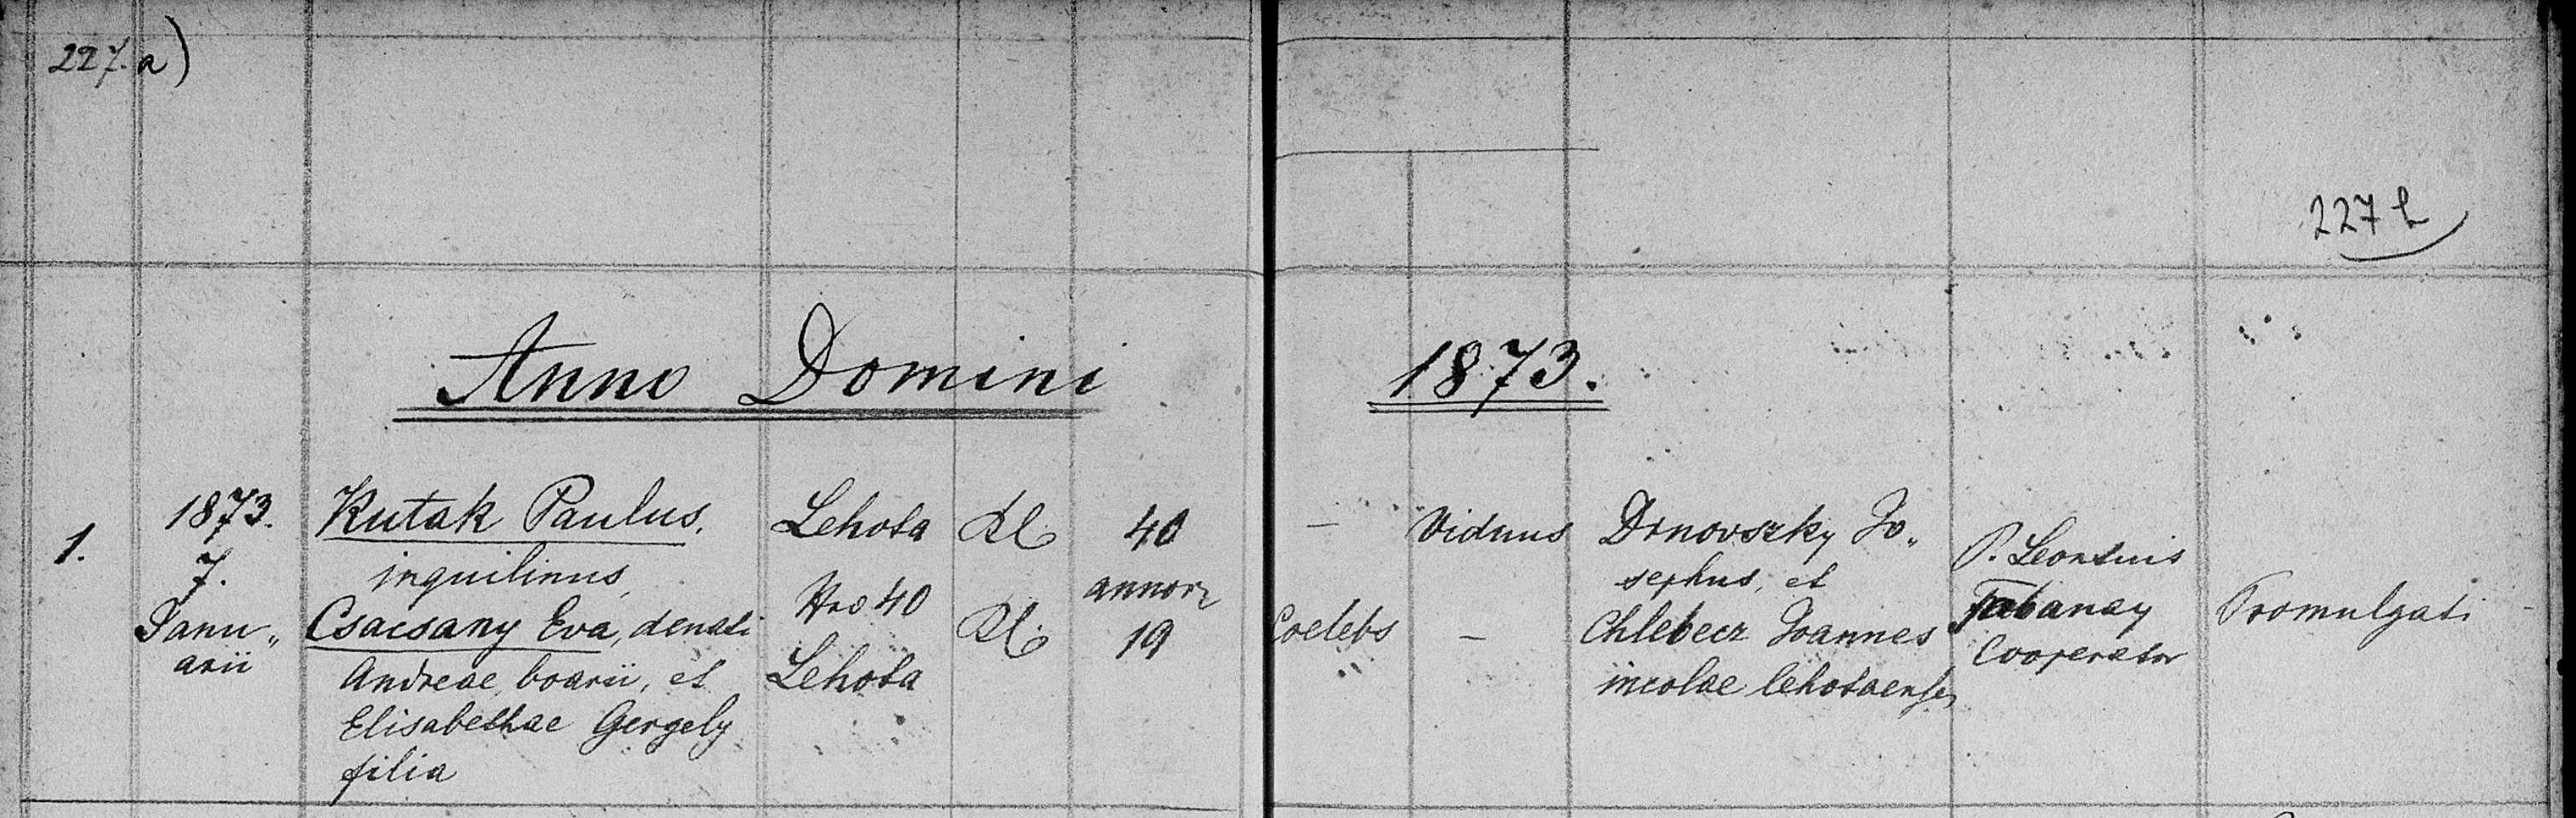 227. a)
227 b
Anno Domini 1873.
1.
1873.
7.
Janu„
arii
Kutak Paulus,
inquilinus,
Csacsany Eva, denati
Andreae, boarii, et
Elisabethae Gergely
filia
Lehota
Nro 40
Lehota
Rk.
Rk.
40
annor
19
—
Coelebs
Viduus
—
Drnovszky Jo„
sephus, et
Chlebecz Joannes
incolae lehotaenses
P. Leontius
Tabanay
Cooperator
Promulgati